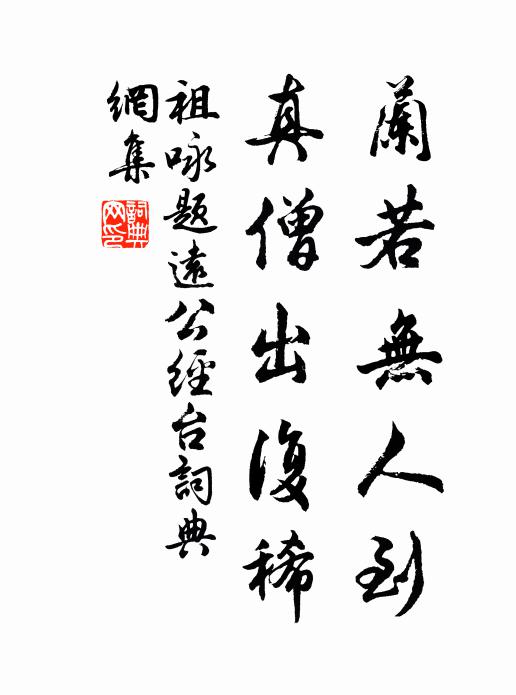 蘭若無人到
真僧出復稀
祖咏題遠公經台詞典
網集
詞典
网印